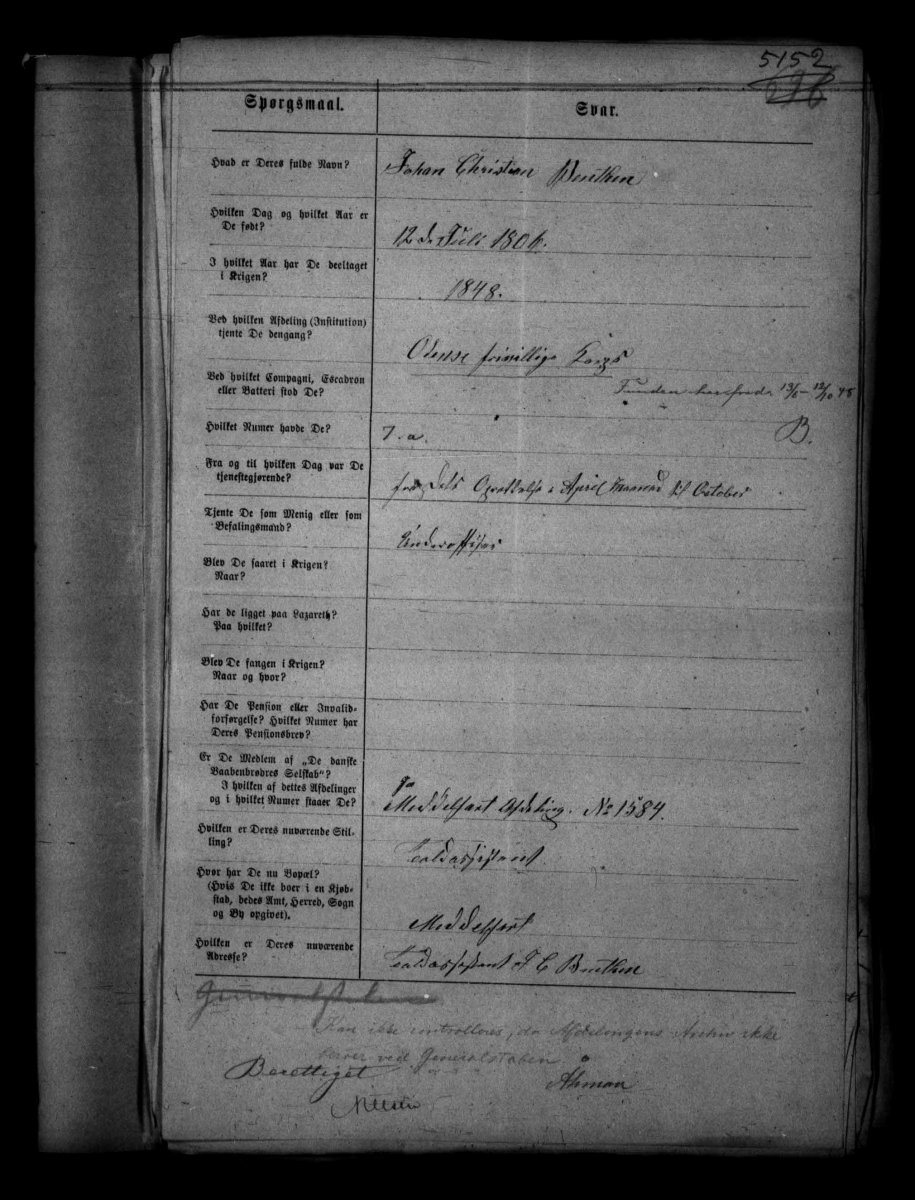 5152
Spørgsmaal.
Svar.
Hvad er Deres fulde Navn?
Johan Christian
Hvilken Dag og hvilket Aar er
De født?
12 de Juli 1806.
I hvilket Aar har De deeltaget
i Krigen?
1848.
Ved hvilken Afdeling (Institution)
tjente De dengang?
Odense frivillige Korps
Ved hvilket Compagni, Escadron
eller Batteri stod De?
Hvilket Numer havde De?
7. a. B.
Fra og til hvilken Dag var De
tjenestegjørende?
fra dets Oprettelse i April Maaned til October
Tjente De som Menig eller som
Befalingsmand?
Underofficer
Blev De saaret i Krigen?
Naar?
Har de ligget paa Lazareth?
Paa hvilket?
Blev De fangen i Krigen?
Naar og hvor?
Har De Pension eller Invalid-
forsørgelse? Hvilket Numer har
Deres Pensionsbrev?
Er De Medlem af „De danske
Vaabenbrødres Selskab“?
I hvilken af dettes Afdelinger
og i hvilket Numer staaer De?
ja
Meddelfart Afdeling. No 1584.
Hvilken er Deres nuværende Stil-
ling?
Toldassistent
Hvor har De nu Bopæl?
(Hvis De ikke boer i en Kjøb-
stad, bedes Amt, Herred, Sogn
og By opgivet).
Meddelfart
Hvilken er Deres nuværende
Adresse?
Toldassistent J C
Generalstaben
Kan ikke controlleres, da Afdelingens Archiv ikke
beroer ved Generalstaben
Berettiget